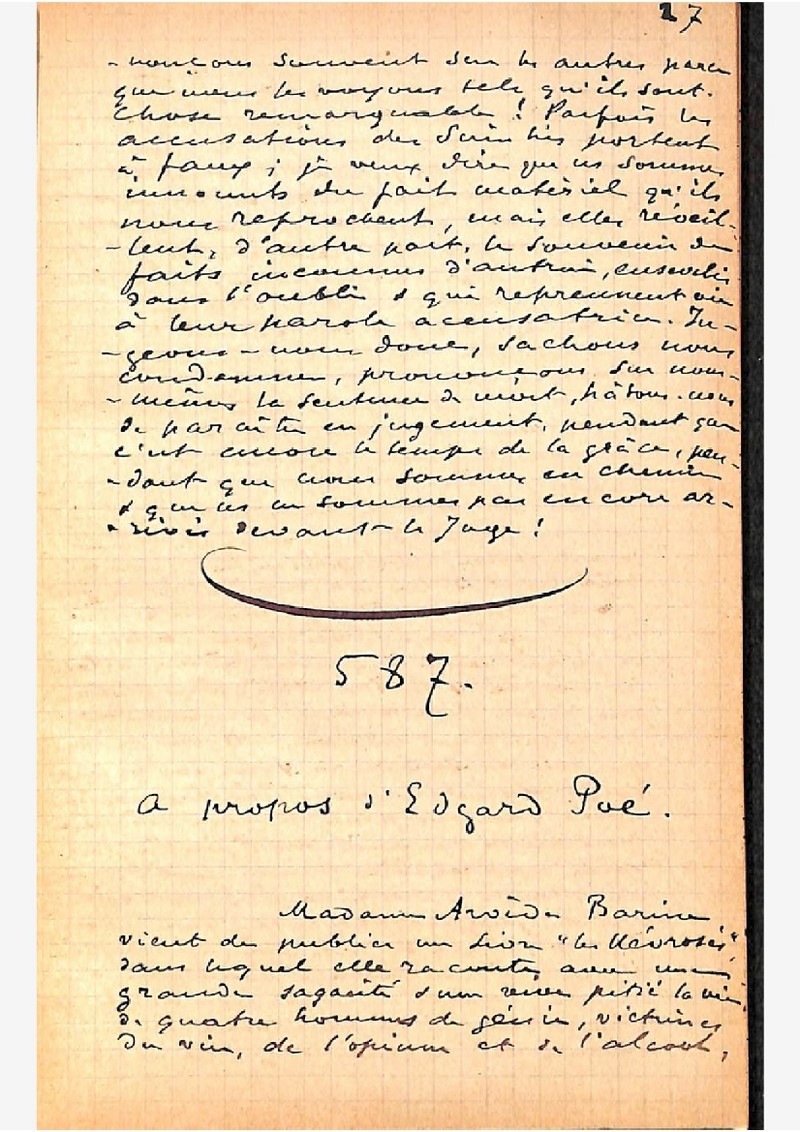 27
-nonçons souvent sur les autres parce
que nous les voyons tels qu'ils sont.
Chose remarquable ! Parfois les
accusations des Saints portent
à faux ; je veux dire que ns sommes
innocents du fait matériel qu'ils
nous reprochent, mais elles réveil-
-lent, d'autre part, le souvenir de
faits inconnus d'autrui, ensevelis
dans l'oubli & qui reprennent vie
à leur parole accusatrice. Ju-
-geons-nous donc, sachons nous
condamner, prononçons sur nous-
-mêmes la sentence de mort, hâtons-nous
de paraître en jugement, pendant que
c'est encore le temps de la grâce, pen-
-dant que nous sommes en chemin
& que ns ne sommes pas encore ar-
-rivés devant le Juge !
587.
A propos d'Edgard Poé.
Madame Arvède Barine
vient de publier un livre "les Névrosés",
dans lequel elle raconte avec une
grande sagacité & une vive pitié la vie
de quatre hommes de génie, victimes
du vin, de l'opium et de l'alcool,